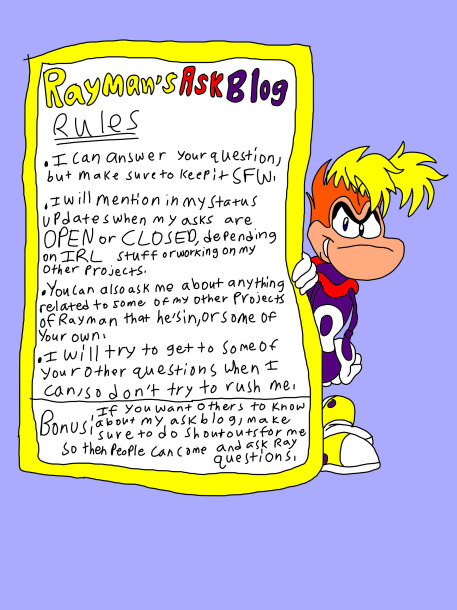 Rayman's Ask Blog
Rules
• I can answer your question,
but make sure to keep it SFW.
• I will mention in my status
updates when my asks are
OPEN or CLOSED, depending
on IRL stuff or working on my
other projects.
• You can also ask me about anything
related to some of my other projects
of Rayman that he's in, or some of
your own.
• I will try to get to some of
your other questions when I
can, so don't try to rush me.
Bonus: If you want others to know
about my ask blog, make
sure to do shoutouts for me
so then people can come and ask Ray
questions.